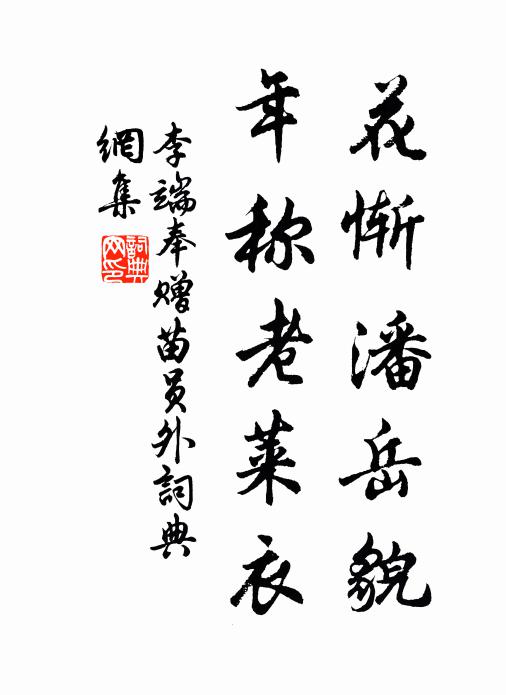 花惭潘岳貌
年称老莱衣
李端奉赠苗员外詞典
網集
詞典
网印